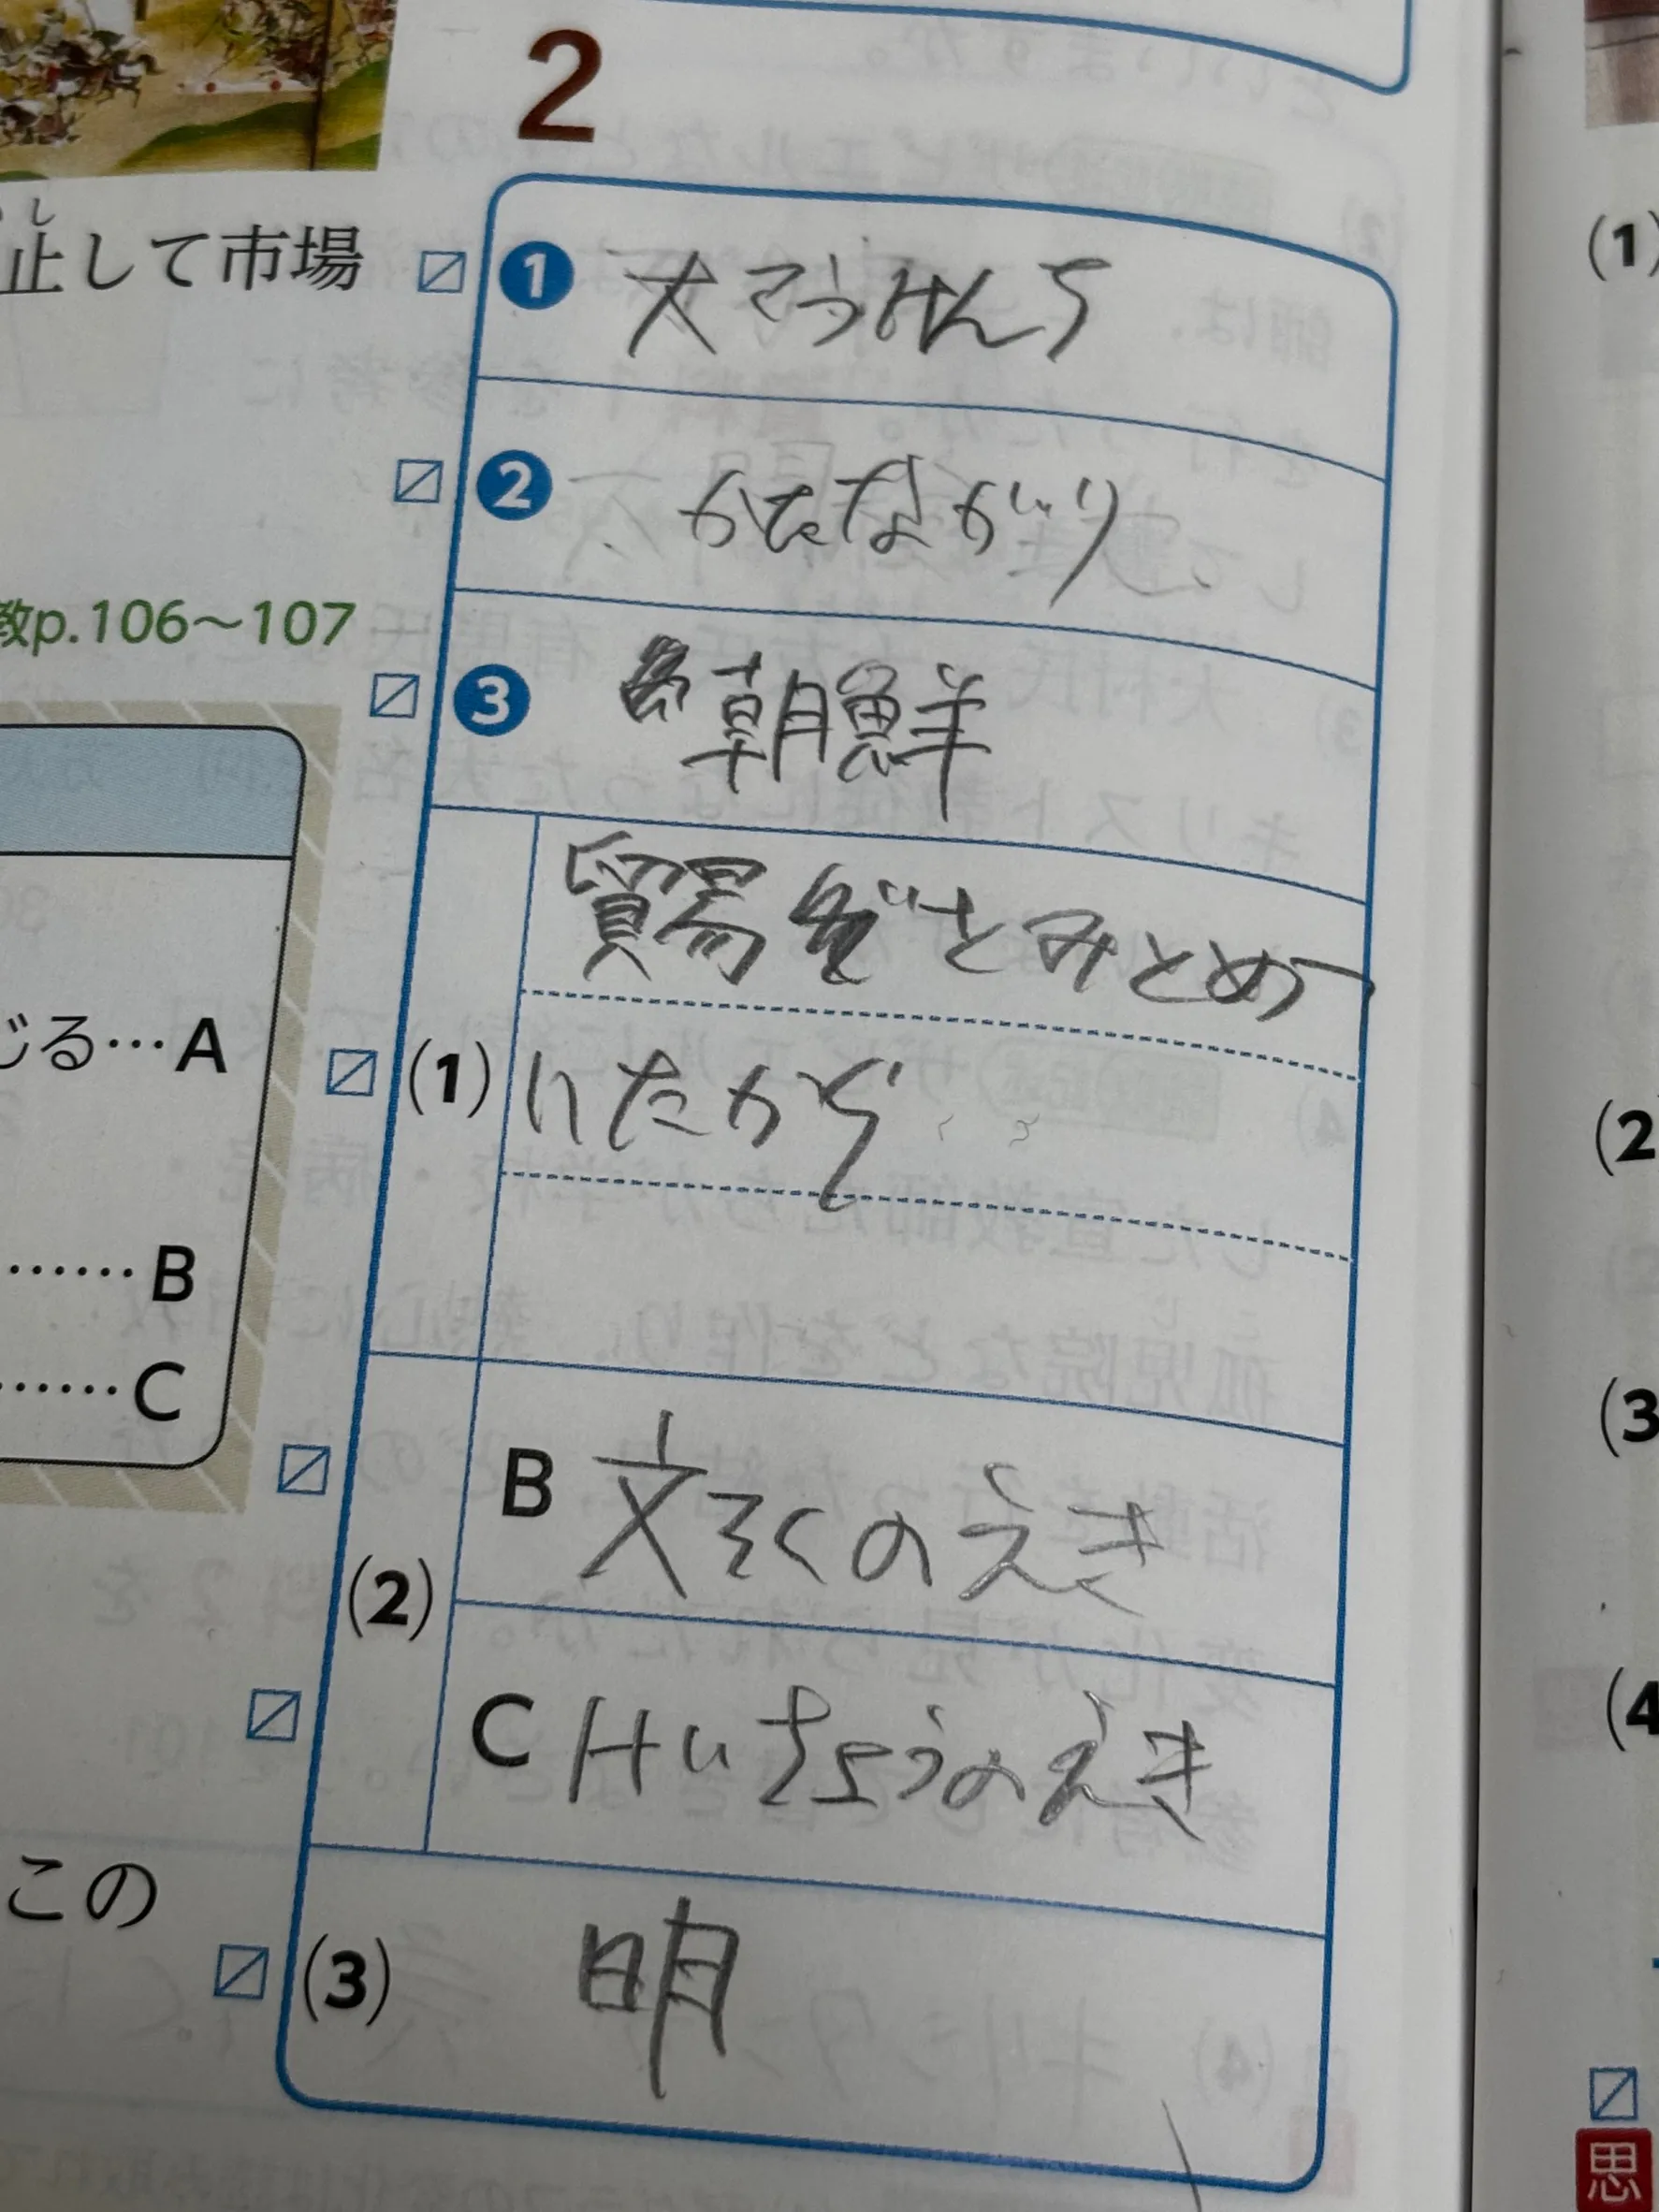 2
止して市場
1 太こうけんち
2 かたながり
教p.106〜107
3 朝鮮
貿易をみとめて
じる…A
(1) いたから
……B
……C
(2)
B 文ろくのえき
C けいちょうのえき
この
(3) 明
(1)
(2
(3
(4
思